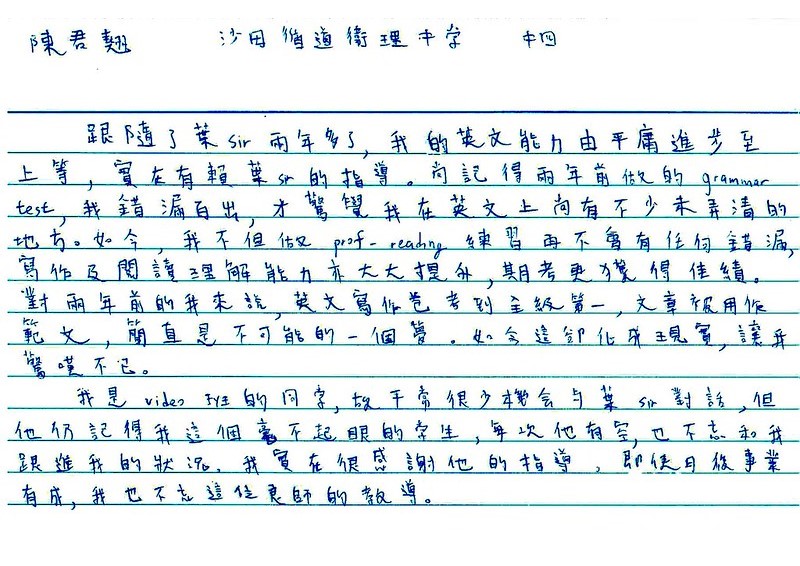 陳君翹 沙田循道衛理中学 中四
跟隨了葉 sir 兩年多了,我的英文能力由平庸進步至
上等,實在有賴葉 sir 的指導。尚記得兩年前做的 grammar
test,我錯漏百出,才驚覺我在英文上尚有不少未弄清的
地方。如今,我不但做 prof-reading 練習再不會有任何錯漏,
寫作及閱讀理解能力亦大大提升,期考更獲得佳績。
對兩年前的我來說,英文寫作卷考到全級第一,文章被用作
範文,簡直是不可能的一個夢。如今這卻化成現實,讓我
驚嘆不已。
我是 video 班的同学,故平常很少機会与葉 sir 對話,但
他仍記得我這個毫不起眼的学生,每次他有空,也不忘和我
跟進我的狀況。我實在很感謝他的指導,即使日後事業
有成,我也不忘這位良師的教導。